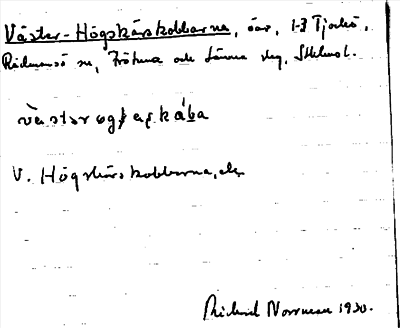 Väster-Högskärskobbarna, öar, 1-3 Tjockö,
Rådmansö sn, Frötuna och Länna skg, Sthlms l.
V. Högskärskobbarna, ek
Richard Norrman 1930.